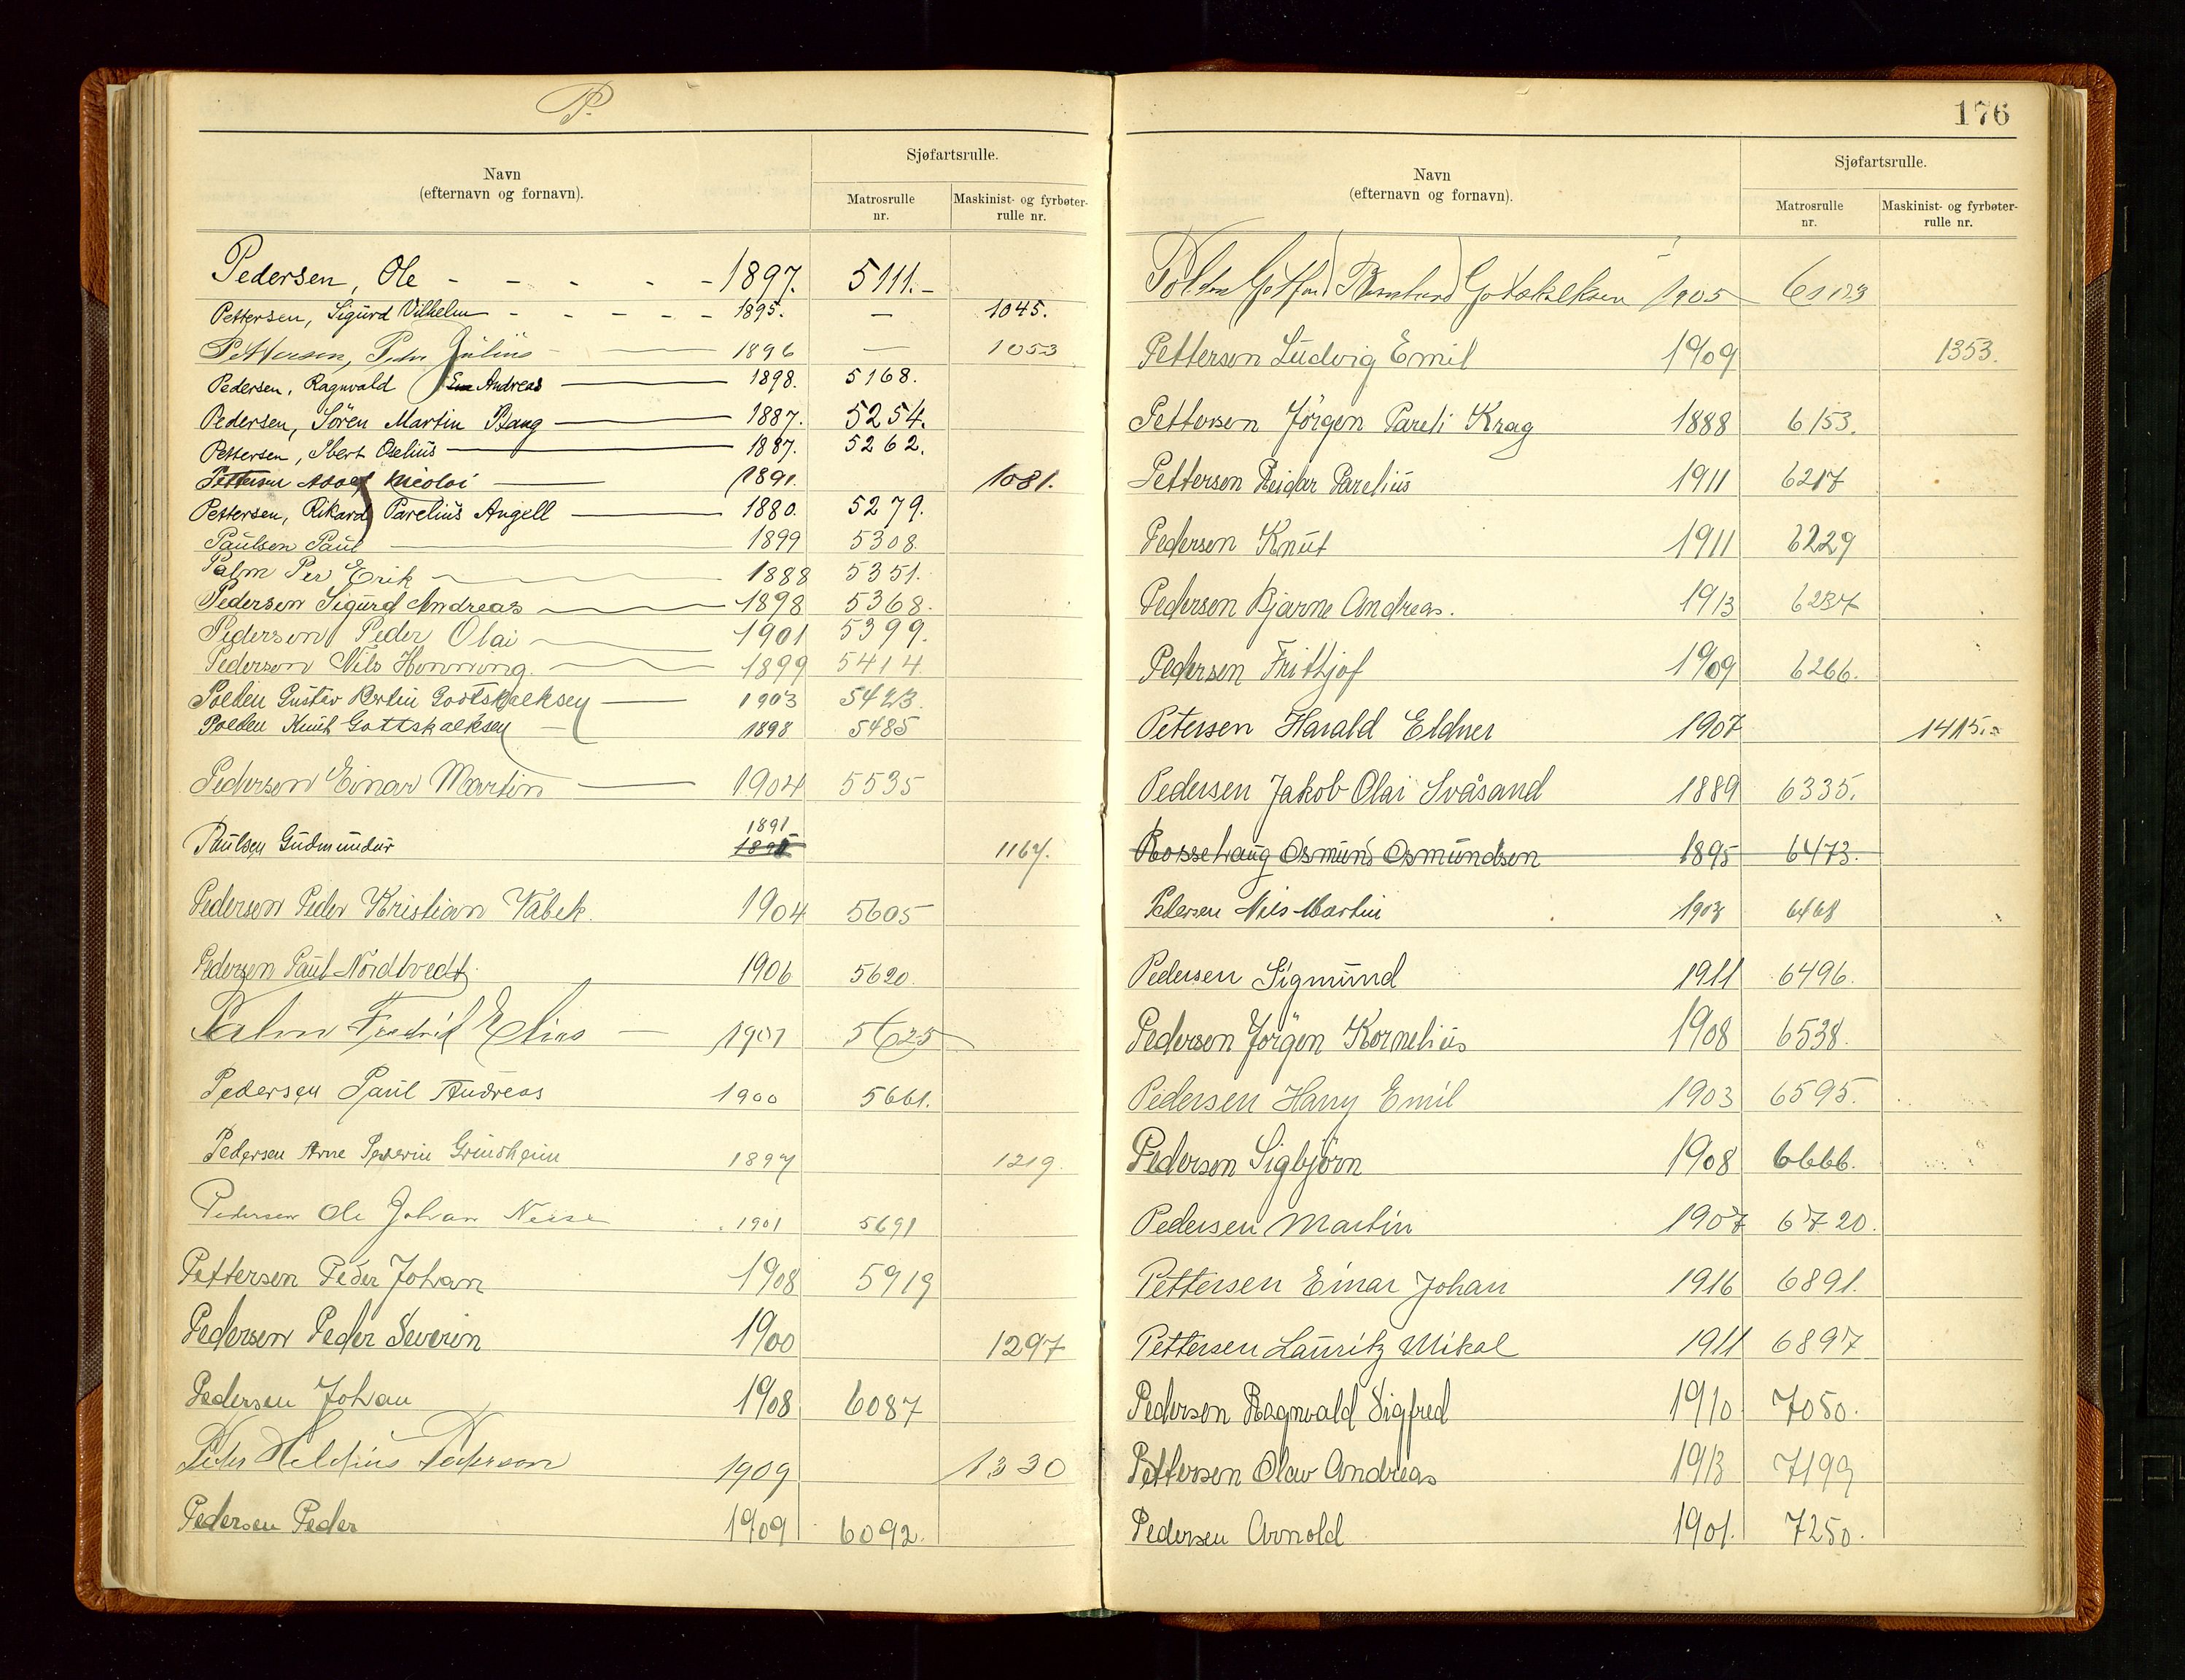 P.
Navn
(efternavn og fornavn).
Sjøfartsrulle.
Matrosrulle
nr.
Maskinist- og fyrbøter-
rulle nr.
Pedersen, Ole - - - - - 1897. 5111.-
Pettersen, Sigurd Vilhelm - - - - - 1895. — 1045.
Pettersen, Peder Julius — 1896 — 1053
Pedersen, Ragnvald Andreas — 1898. 5168.
Pedersen, Sören Martin Bang — 1887. 5254.
Pettersen, Ibert Oselius — 1887. 5262.
Pettersen Adolf Nicolai — 1891. 1081.
Pettersen, Rikard Parelius Angell — 1880. 5279.
Paulsen Paul — 1899 5308.
Palm Per Erik — 1888 5351.
Pedersen Sigurd Andreas — 1898 5368.
Pedersen Peder Olai — 1901 5399.
Pedersen Nils Henning. — 1899 5414.
Polden Gustav Bertin Gottskalksen — 1903
Polden Knut Gottskalksen — 1898 5485
Pedersen Einar Martin — 1904 5535
Paulsen Gudmundur 1891 1167.
Pedersen Peder Kristian Vabek. 1904 5605
Pedersen Paul Nordtvedt. 1906 5620.
Palm Fredrik Elias — 1901 5625
Pedersen Paul Andreas 1900 5661.
Pedersen Arne Severin Grindheim 1897 1219.
Pedersen Ole Johan Nesse 1901 5691
Pettersen Peder Johan 1908 5919
Pedersen Peder Severin 1900 1297
Pedersen Johan 1908 6087
Peder Pederson 1909 1330
Pedersen Peder 1909 6092.
176
Navn
(efternavn og fornavn).
Sjøfartsrulle.
Matrosrulle
nr.
Maskinist- og fyrbøter-
rulle nr.
Polden Bernhard Gotskalksen 1905
Pettersen Ludvig Emil 1909 1353.
Pettersen Jörgen Pareli Krag 1888 6153.
Pettersen Reidar Parelius 1911 6217
Pedersen Knut 1911 6229
Pedersen Bjarne Andreas. 1913 6237
Pedersen Frithjof 1909 6266.
Petersen Harald Eldner 1907 1415.
Pedersen Jakob Olai Svåsand 1889 6335.
Rossehaug Osmund Osmundsen 1895 6473.
Pedersen Nils Martin 1903 6468
Pedersen Sigmund 1911 6496.
Pedersen Jörgen Kornelius 1908 6538.
Pedersen Harry Emil 1903 6595.
Pedersen Sigbjörn 1908 6666.
Pedersen Martin 1907 6720.
Pettersen Einar Johan 1916 6891.
Pettersen Lauritz Mikal 1911 6897
Pedersen Ragnvald Sigfred 1910 7050.
Pettersen Olav Andreas 1913 7199
Pedersen Arnold 1901. 7250.